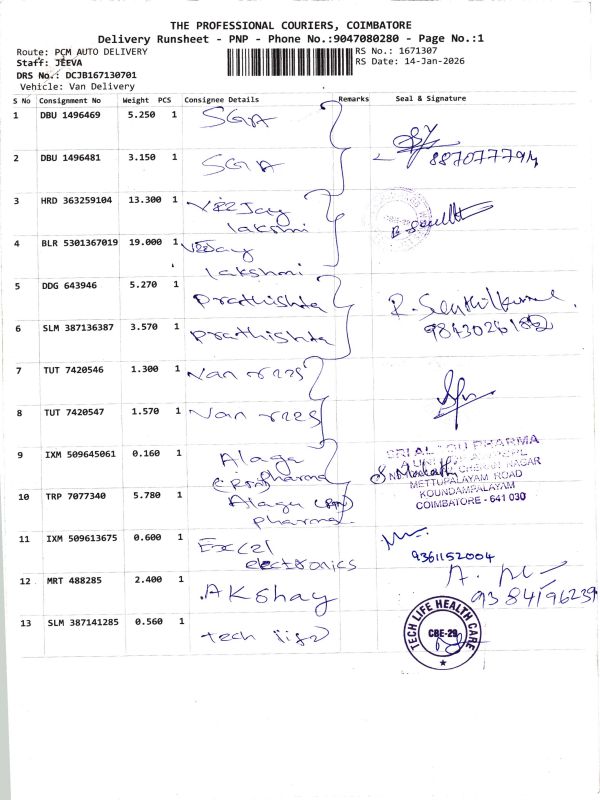 THE PROFESSIONAL COURIERS, COIMBATORE
Delivery Runsheet - PNP - Phone No.:9047080280 - Page No.:1
Route: PCM AUTO DELIVERY
Staff: JEEVA
DRS No.: DCJB167130701
Vehicle: Van Delivery
RS No.: 1671307
RS Date: 14-Jan-2026
S No Consignment No Weight PCS Consignee Details Remarks Seal & Signature
1 DBU 1496469 5.250 1 SGA
2 DBU 1496481 3.150 1 SGA
3 HRD 363259104 13.300 1 Vezjay
lakshmi
4 BLR 5301367019 19.000 1 Vezjay
lakshmi
5 DDG 643946 5.270 1 Prathishta
6 SLM 387136387 3.570 1 Prathishta
R. Senthilkumar
7 TUT 7420546 1.300 1 Van
8 TUT 7420547 1.570 1 Van
9 IXM 509645061 0.160 1 Alaga
pharma
10 TRP 7077340 5.780 1 Alagu
pharma
PHARMA
METTUPALAYAM ROAD
KOUNDAMPALAYAM
COIMBATORE - 641 030
11 IXM 509613675 0.600 1 Excel
electronics
9361152004
12 MRT 488285 2.400 1 Akshay
9384196239
13 SLM 387141285 0.560 1 tech life
TECH LIFE HEALTH CARE
CBE-29